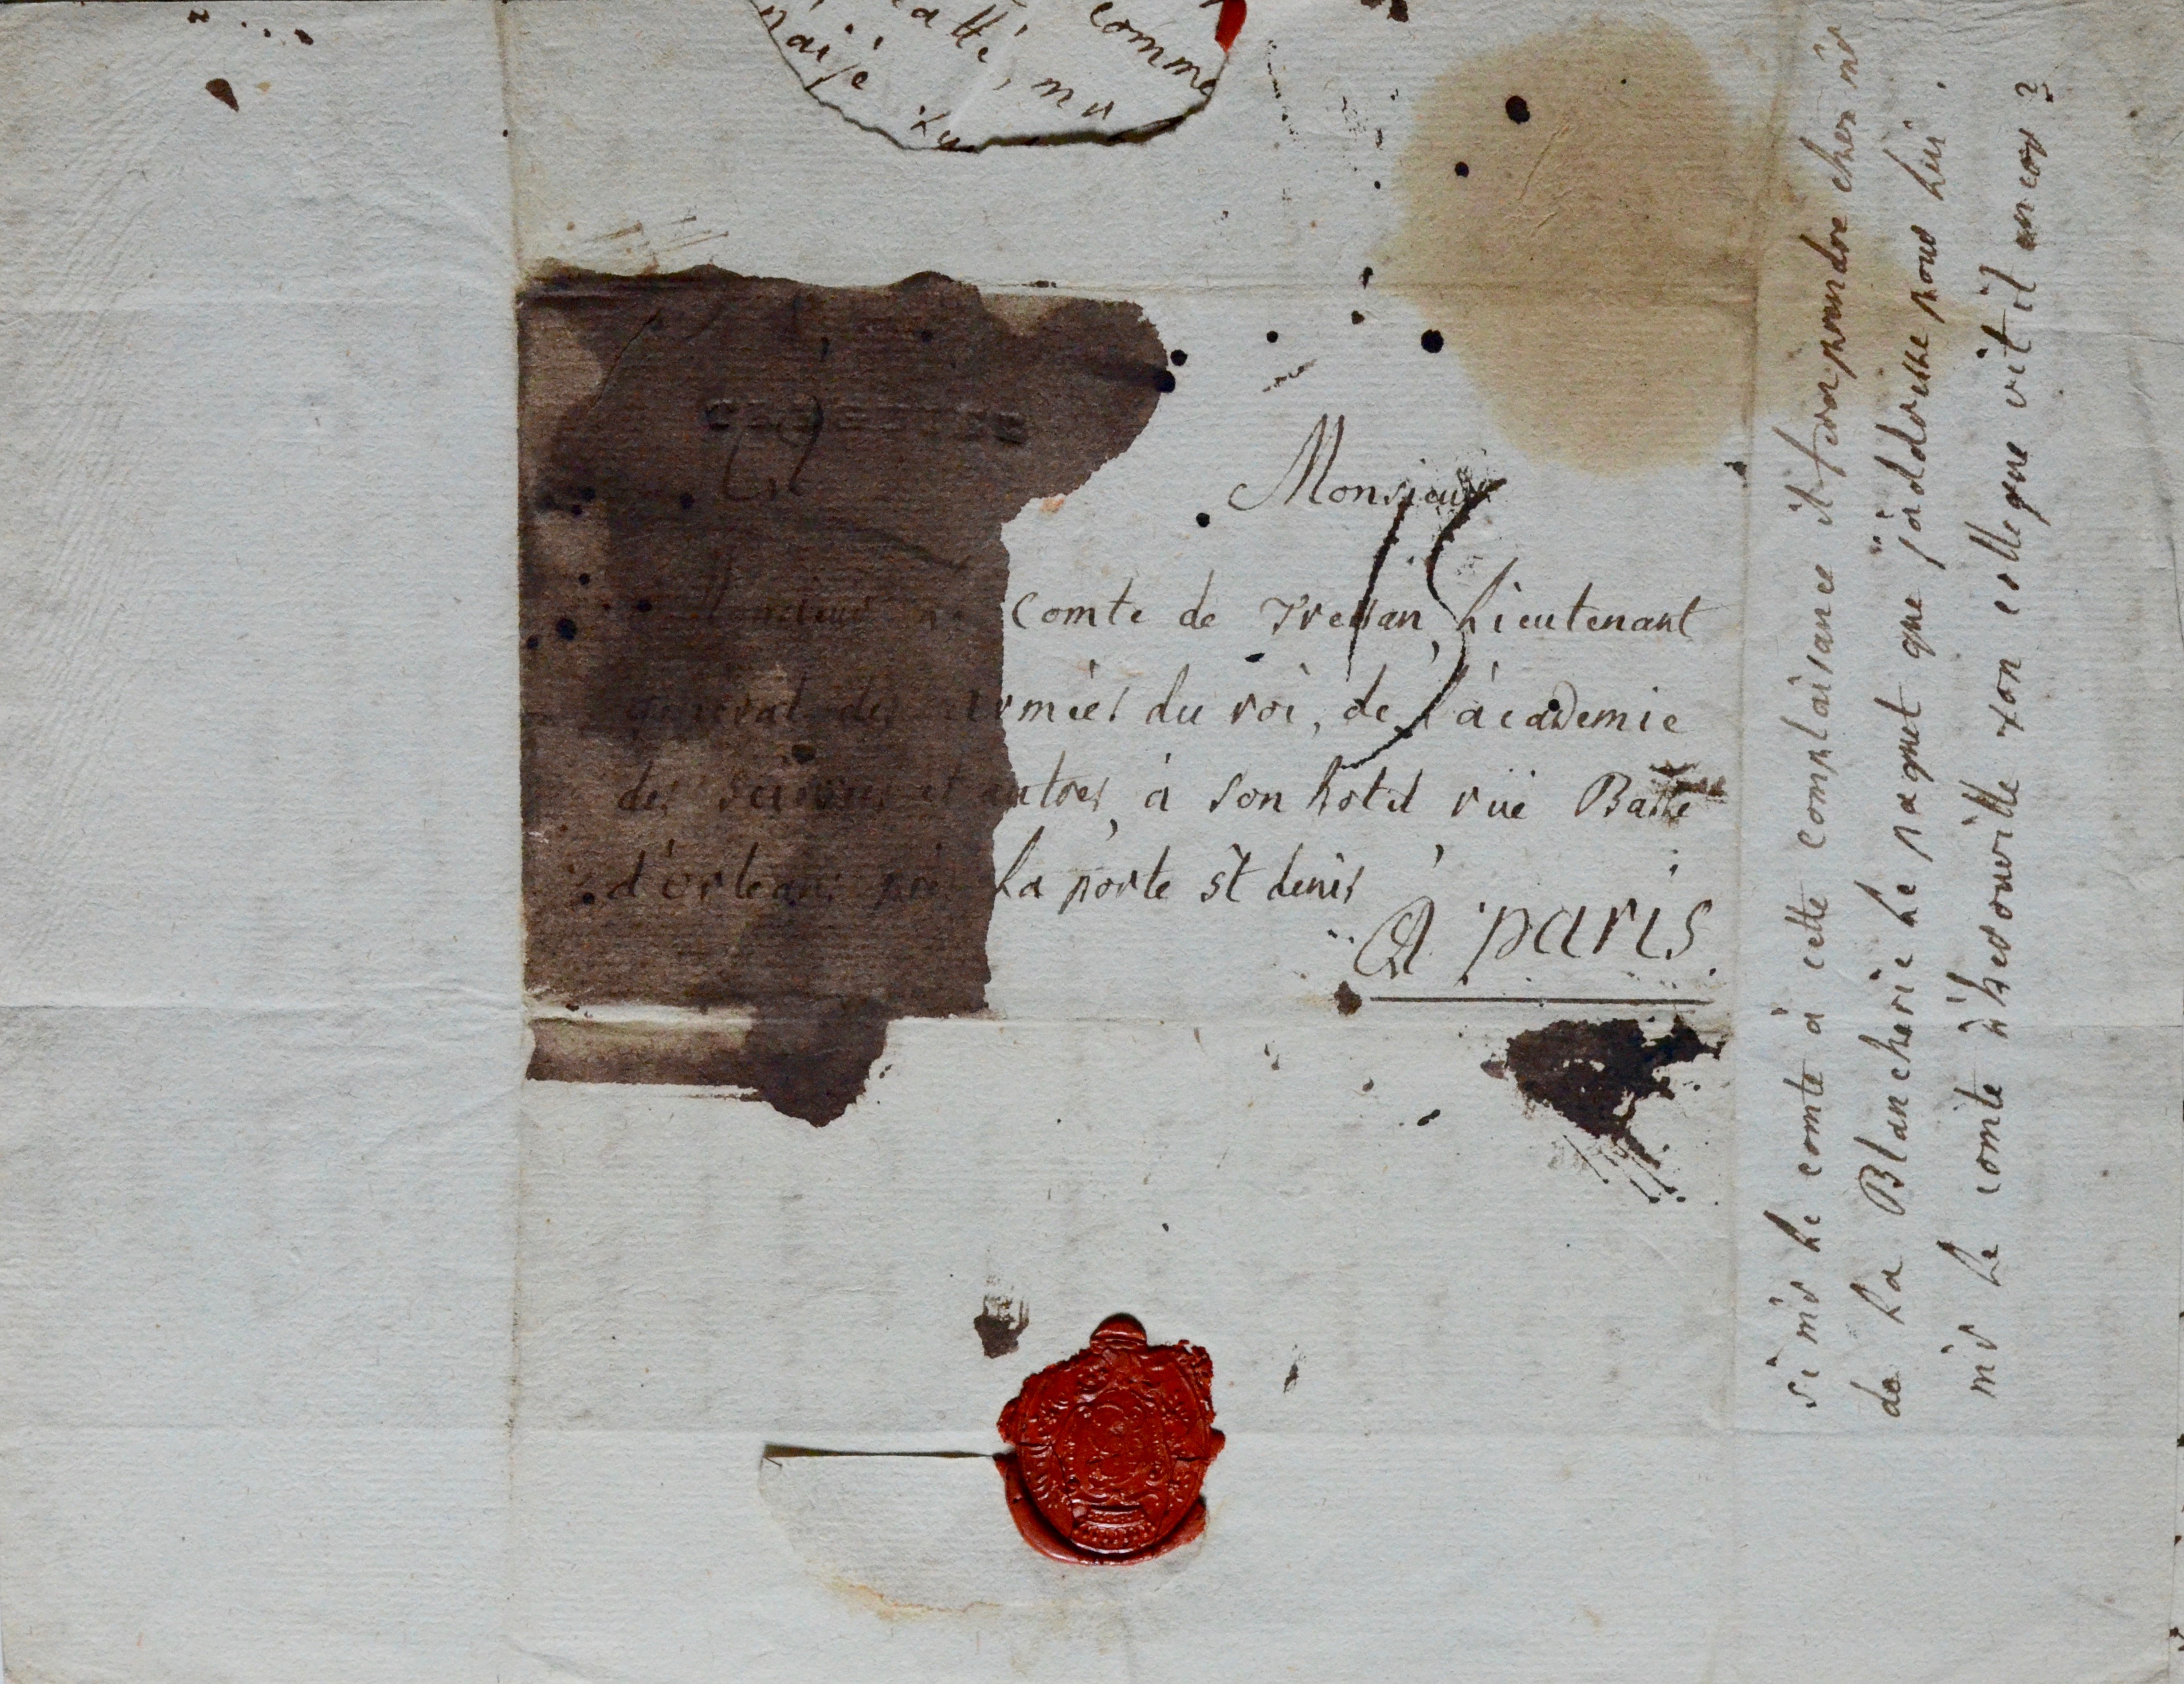 comme
catté, mr
naise
Monsieur
Monsieur le Comte de Tressan, Lieutenant
general des armées du roi, de l'académie
des sciences et autres, à son hotel rüe Basse
d'orleans près La porte st denis
A paris
15
si mr Le comte à cette complaisance il fera prendre chez mr
de La Blancherie Le paquet que j'addresse pour Lui.
mr Le comte d'herouville xon est que vit il encor ?